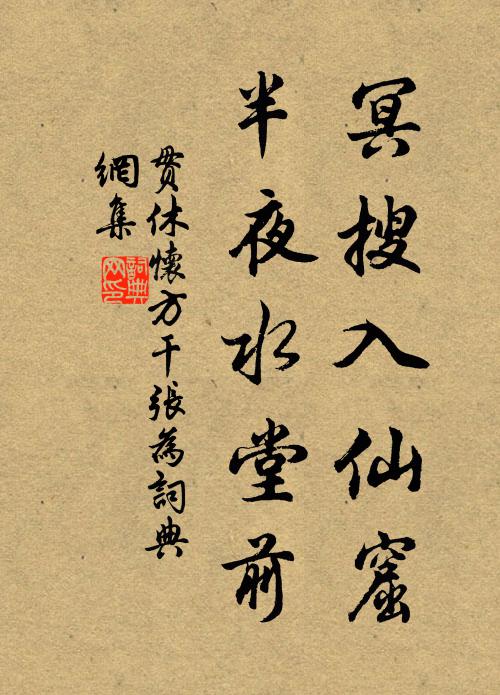 冥搜入仙窟
半夜水堂前
贯休懷方干張為詞典
網集
詞典
网印